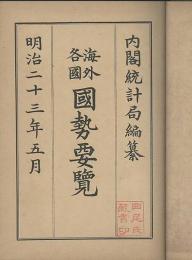 内閣統計局編纂
海外各國
國勢要覽
明治二十三年五月